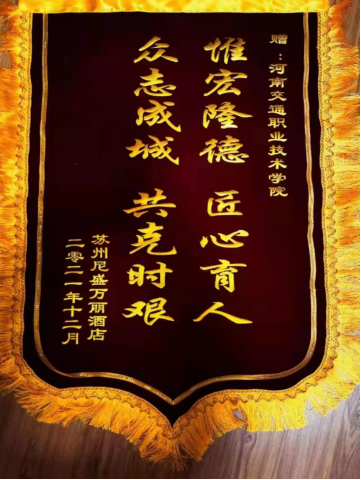 赠：河南交通职业技术学院
惟宏隆德 匠心育人
众志成城 共克时艰
苏州尼盛万丽酒店
二零二一年十二月